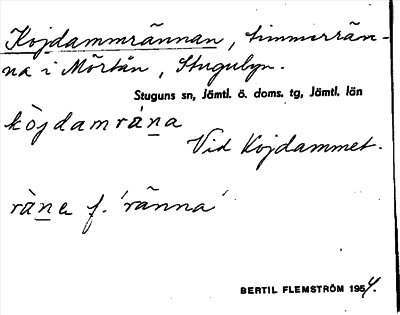 Kojdammrännan, timmerrän-
na i Mörtån, Stugubyn.
Stuguns sn, Jämtl. ö. doms. tg, Jämtl. län
kòjdamrána
Vid Kojdammet.
ràna f. 'ränna'
BERTIL FLEMSTRÖM 1954.